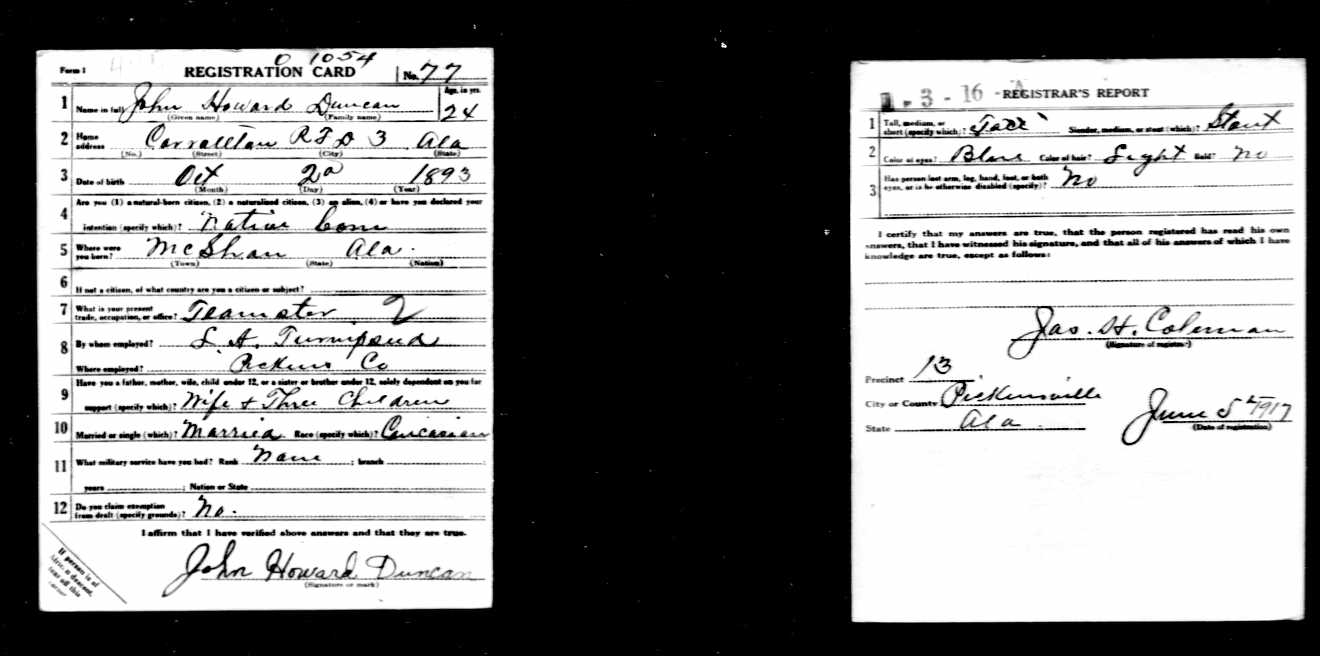 0 1054
Form 1 REGISTRATION CARD No. 77
1 Name in full John Howard Duncan Age, in yrs. 24
(Given name) (Family name)
2 Home address Carrollton R F D 3 Ala
(No.) (Street) (City) (State)
3 Date of birth Oct 2 1893
(Month) (Day) (Year)
Are you (1) a natural-born citizen, (2) a naturalized citizen, (3) an alien, (4) or have you declared your
4 intention (specify which)? Native born
5 Where were you born? McShan Ala.
(Town) (State) (Nation)
6 If not a citizen, of what country are you a citizen or subject?
7 What is your present trade, occupation, or office? Teamster 2
8 By whom employed? L. A. Turnipseed
Where employed? Pickens Co
Have you a father, mother, wife, child under 12, or a sister or brother under 12, solely dependent on you for
9 support (specify which)? Wife + Three Children
10 Married or single (which)? Married. Race (specify which)? Caucasian
11 What military service have you had? Rank None ; branch ;
years ; Nation or State
12 Do you claim exemption from draft (specify grounds)? No.
I affirm that I have verified above answers and that they are true.
John Howard Duncan
(Signature or mark)
If person is of
African descent,
tear off this
corner
3 - 16 - A REGISTRAR'S REPORT
1 Tall, medium, or short (specify which)? Tall Slender, medium, or stout (which)? Stout
2 Color of eyes? Blue Color of hair? Light Bald? No
3 Has person lost arm, leg, hand, foot, or both eyes, or is he otherwise disabled (specify)? No
I certify that my answers are true, that the person registered has read his own
answers, that I have witnessed his signature, and that all of his answers of which I have
knowledge are true, except as follows:
Jas. H. Coleman
(Signature of registrar)
Precinct 13
City or County Pickensville
State Ala.
June 5 1917
(Date of registration)